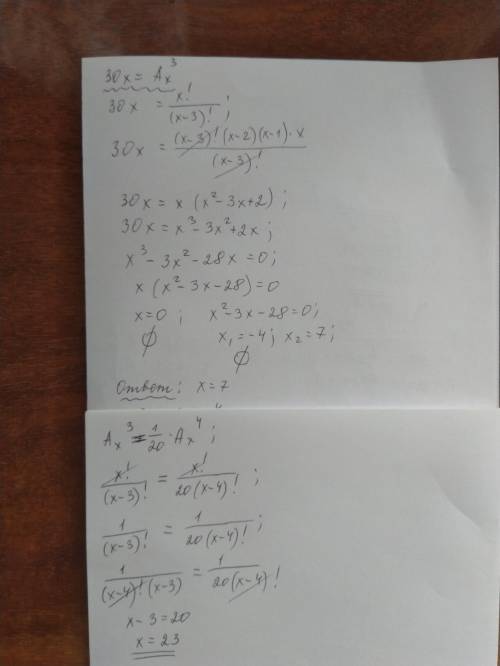 30x = Aₓ³
30x = x!/(x-3)! ;
30x = (x-3)!(x-2)(x-1)·x/(x-3)!
30x = x (x²-3x+2) ;
30x = x³-3x²+2x ;
x³-3x²-28x = 0 ;
x (x²-3x-28) = 0
x=0 ; x²-3x-28=0 ;
∅ x₁=-4 ; x₂=7 ;
∅
Ответ: x=7
Aₓ³ = 1/20 · Aₓ⁴ ;
x!/(x-3)! = x!/20(x-4)! ;
1/(x-3)! = 1/20(x-4)! ;
1/(x-4)!(x-3) = 1/20(x-4)!
x-3=20
x=23